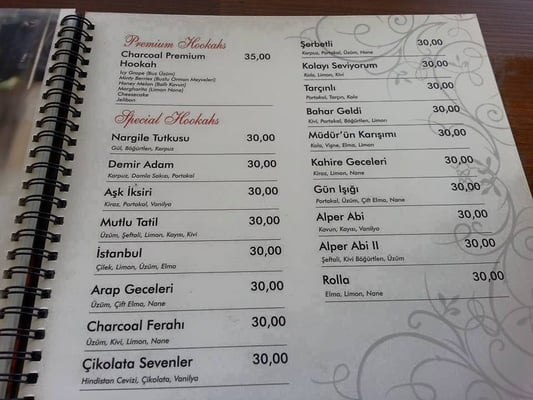 Premium Hookahs
Charcoal Premium 35,00
Hookah
Icy Grape (Buz Üzüm)
Misty Berries (Buslu Orman Meyveleri)
Honey Melon (Ballı Kavun)
Margharita (Limon Nane)
Cheesecake
Jelibon
Special Hookahs
Nargile Tutkusu 30,00
Gül, Böğürtlen, Karpuz
Demir Adam 30,00
Karpuz, Damla Sakızı, Portakal
Aşk İksiri 30,00
Kiraz, Portakal, Vanilya
Mutlu Tatil 30,00
Üzüm, Şeftali, Limon, Kayısı, Kivi
İstanbul 30,00
Çilek, Limon, Üzüm, Elma
Arap Geceleri 30,00
Üzüm, Çift Elma, Nane
Charcoal Ferahı 30,00
Üzüm, Kivi, Limon, Nane
Çikolata Sevenler 30,00
Hindistan Cevizi, Çikolata, Vanilya
Şerbetli 30,00
Karpuz, Portakal, Üzüm, Nane
Kolayı Seviyorum 30,00
Kola, Limon, Kivi
Tarçınlı 30,00
Portakal, Tarçın, Kola
Bahar Geldi 30,00
Kivi, Portakal, Böğürtlen, Limon
Müdür'ün Karışımı 30,00
Kola, Vişne, Elma, Limon
Kahire Geceleri 30,00
Kiraz, Limon, Nane
Gün Işığı 30,00
Portakal, Üzüm, Çift Elma, Nane
Alper Abi 30,00
Kavun, Kayısı, Vanilya
Alper Abi II 30,00
Şeftali, Kivi Böğürtlen, Üzüm
Rolla 30,00
Elma, Limon, Nane